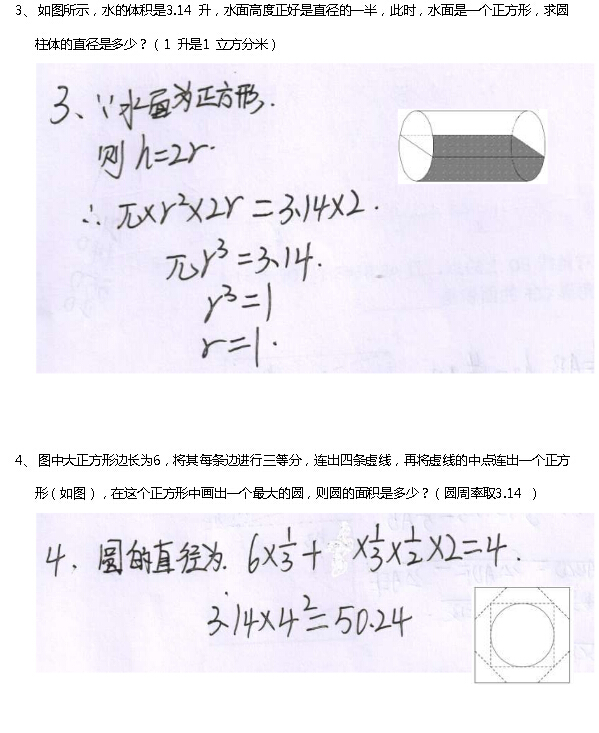 3、如图所示，水的体积是3.14 升，水面高度正好是直径的一半，此时，水面是一个正方形，求圆
柱体的直径是多少？（1 升是1 立方分米）
3、∵水面为正方形.
则 h=2r.
∴ π×r²×2r=3.14×2.
πr³=3.14.
r³=1
r=1.
4、图中大正方形边长为6，将其每条边进行三等分，连出四条虚线，再将虚线的中点连出一个正方
形（如图），在这个正方形中画出一个最大的圆，则圆的面积是多少？（圆周率取3.14 ）
4、圆的直径为. 6×1/3+ ×1/3×1/2×2=4.
3.14×4²=50.24